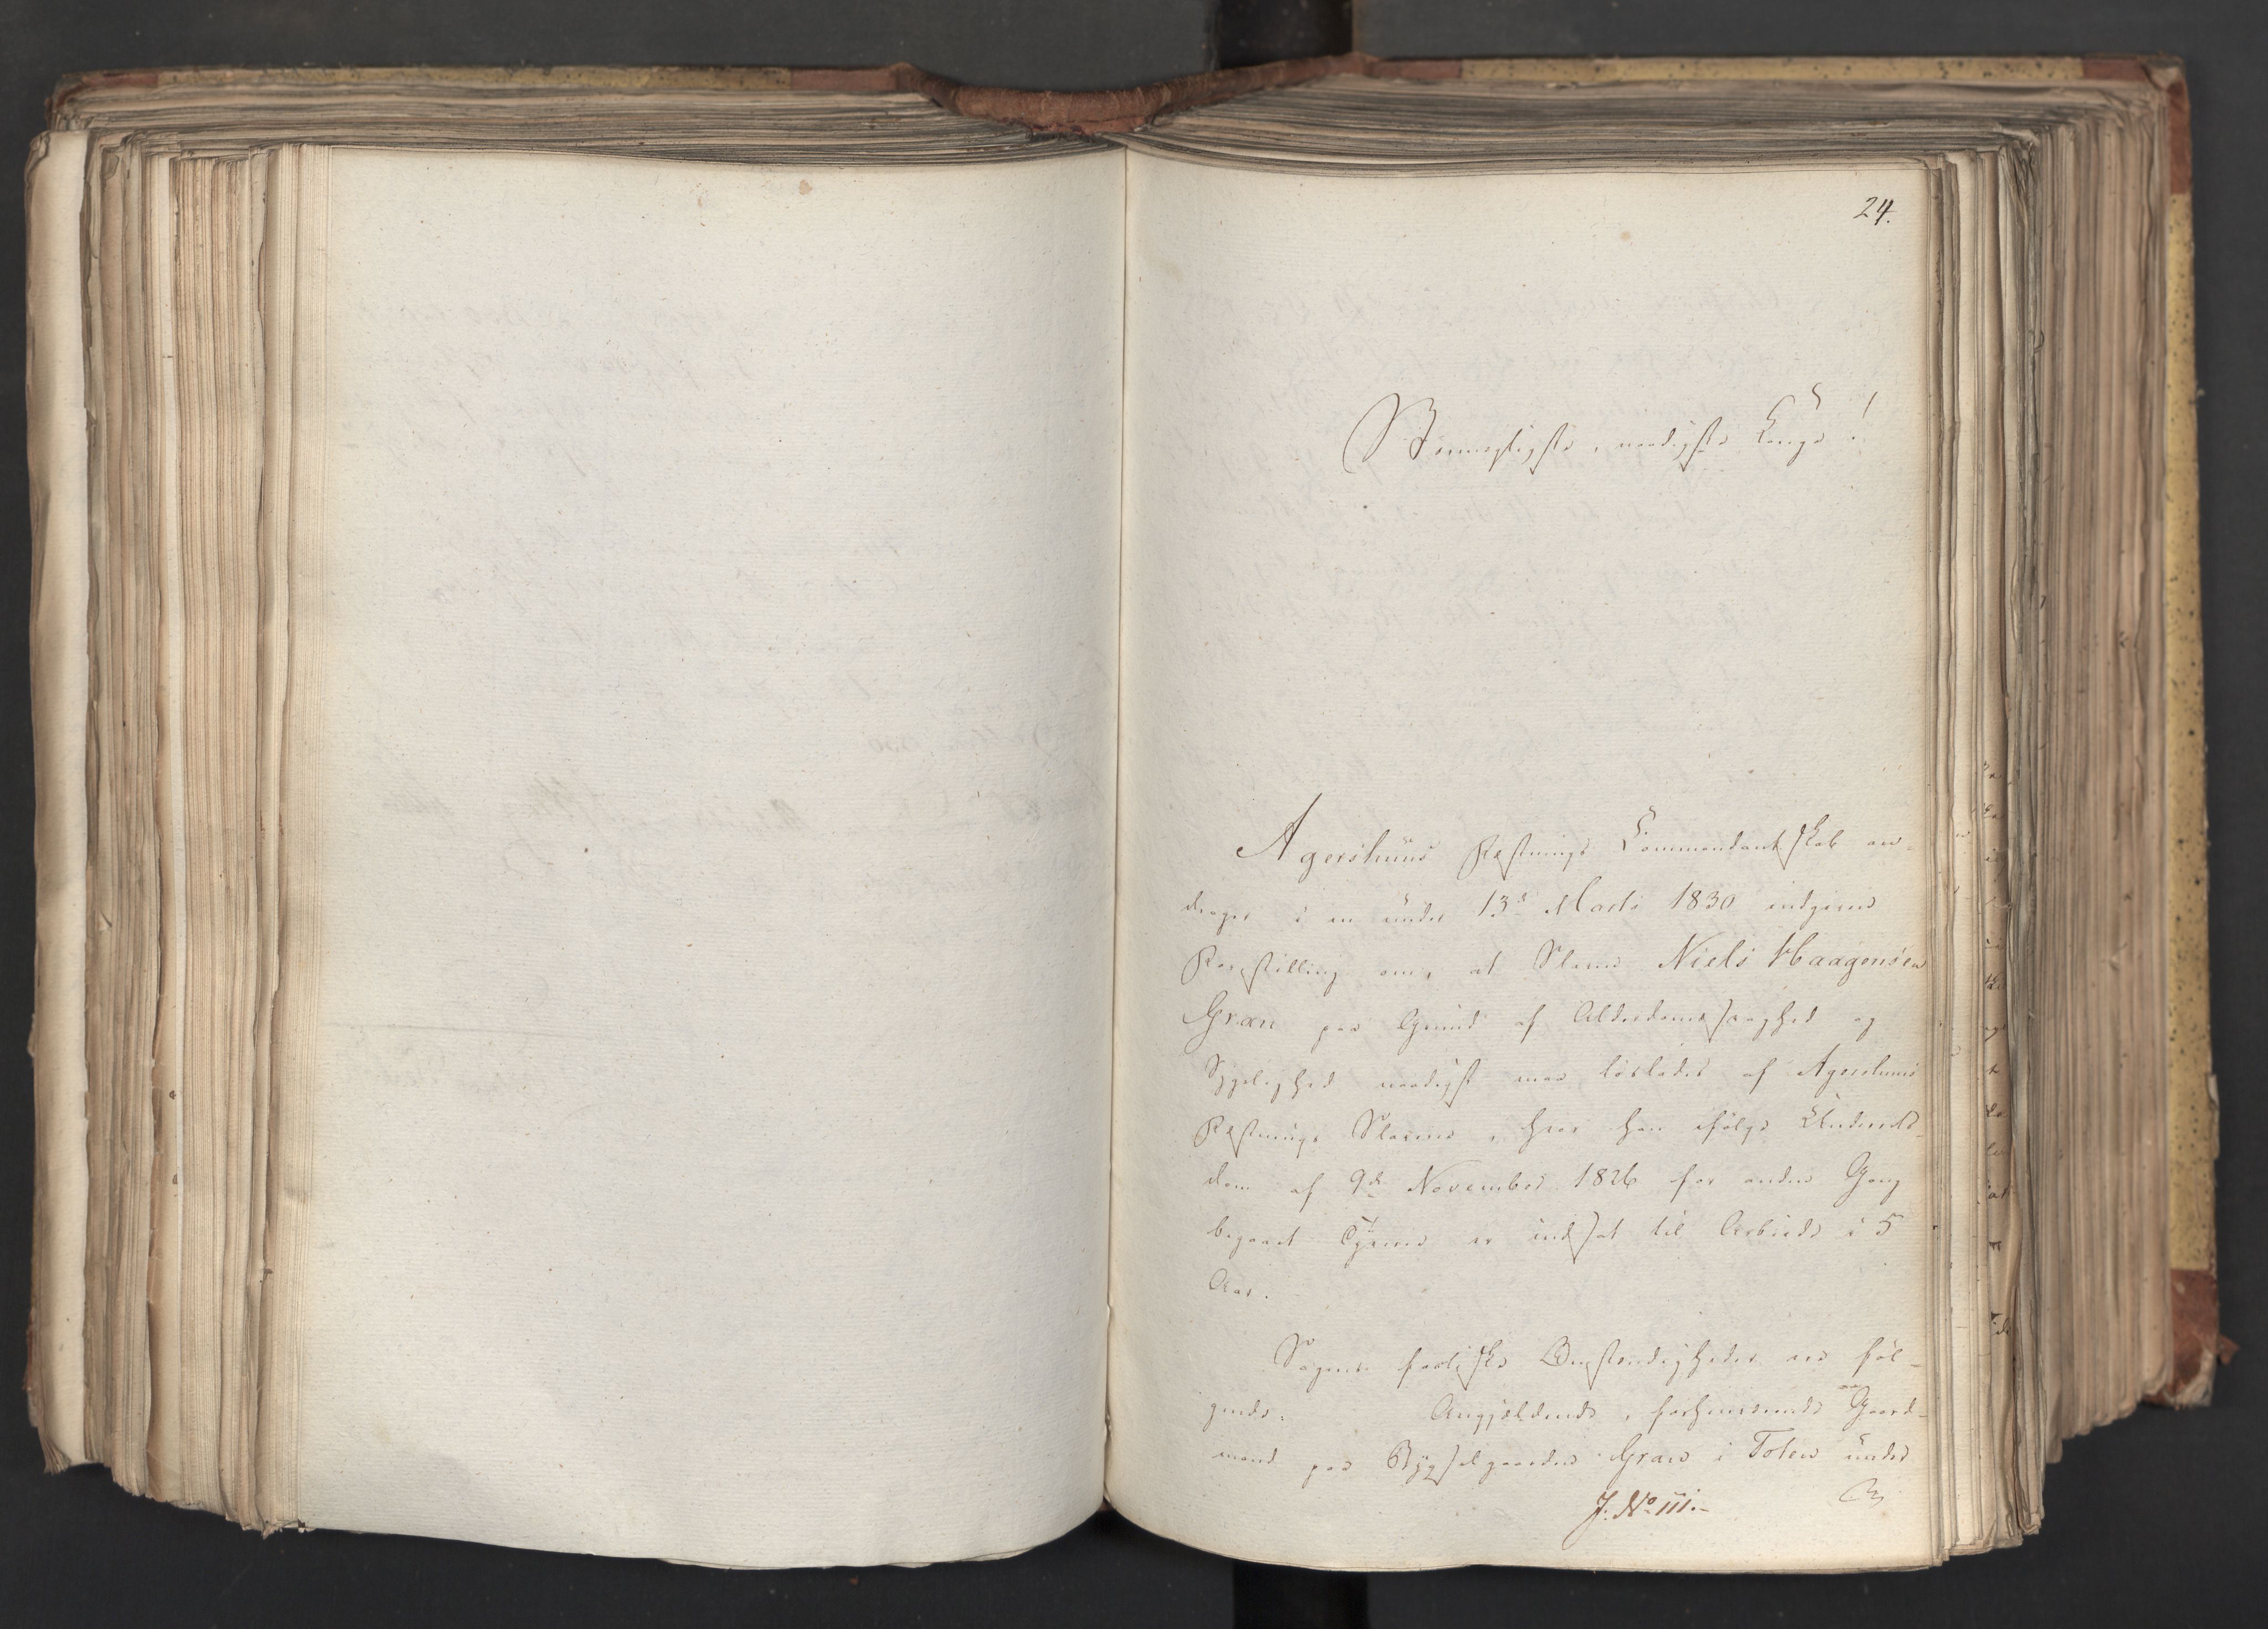 24.
Stormægtigste, naadigste Konge!
Agershuus Fæstnings Commandantskab an-
drager i en under 13d Marts 1830 indgiven
Forestilling om, at Slave Niels Haagensen
Gran paa Grund af Alderdomssvaghed og
Sygelighed naadigst maa løslades af Agershuus
Fæstnings Slaverie, hvor han ifølge Underrets-
dom af 9de November 1826 for anden Gang
begaaet Tyverie er indsat til Arbeide i 5
Aar.
Sagens factiske Omstændigheder ere føl-
gende. Angjældende, forhenværende Gaard-
mand paa Bygselgaarden Gran i Toten under
J. No 111.-